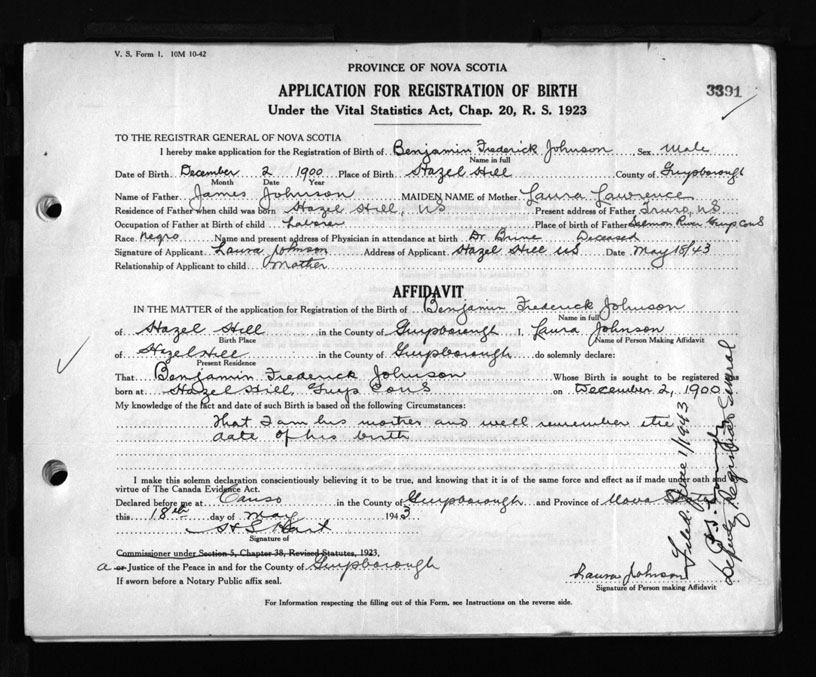 V. S. Form 1. 10M 10-42
PROVINCE OF NOVA SCOTIA
APPLICATION FOR REGISTRATION OF BIRTH
3391
Under the Vital Statistics Act, Chap. 20, R. S. 1923
TO THE REGISTRAR GENERAL OF NOVA SCOTIA
I hereby make application for the Registration of Birth of Benjamin Frederick Johnson Sex Male
Name in full
Date of Birth December 2 1900 Place of Birth Hazel Hill County of Guysborough
Month Date Year
Name of Father James Johnson MAIDEN NAME of Mother Laura Lawrence
Residence of Father when child was born Hazel Hill, NS Present address of Father Truro, NS
Occupation of Father at Birth of child Laborer Place of birth of Father Salmon River Guys Co NS
Race Negro Name and present address of Physician in attendance at birth Dr Brine Deceased
Signature of Applicant Laura Johnson Address of Applicant Hazel Hill NS Date May 18/43
Relationship of Applicant to child Mother
AFFIDAVIT
IN THE MATTER of the application for Registration of the Birth of Benjamin Frederick Johnson
Name in full
of Hazel Hill in the County of Guysborough I, Laura Johnson
Birth Place Name of Person Making Affidavit
of Hazel Hill in the County of Guysborough do solemnly declare:
Present Residence
That Benjamin Frederick Johnson Whose Birth is sought to be registered was
born at Hazel Hill, Guys Co NS on December 2, 1900
My knowledge of the fact and date of such Birth is based on the following Circumstances:
That I am his mother and well remember the
date of his birth
I make this solemn declaration conscientiously believing it to be true, and knowing that it is of the same force and effect as if made under oath and by
virtue of The Canada Evidence Act.
Declared before me at Canso in the County of Guysborough and Province of Nova Scotia
this 18th day of May 1943
Hart
Signature of
Commissioner under Section 5, Chapter 38, Revised Statutes, 1923,
a or Justice of the Peace in and for the County of Guysborough
If sworn before a Notary Public affix seal.
Laura Johnson
Signature of Person making Affidavit
For Information respecting the filling out of this Form, see Instructions on the reverse side.
Filed June 1/1943
Deputy Registrar General